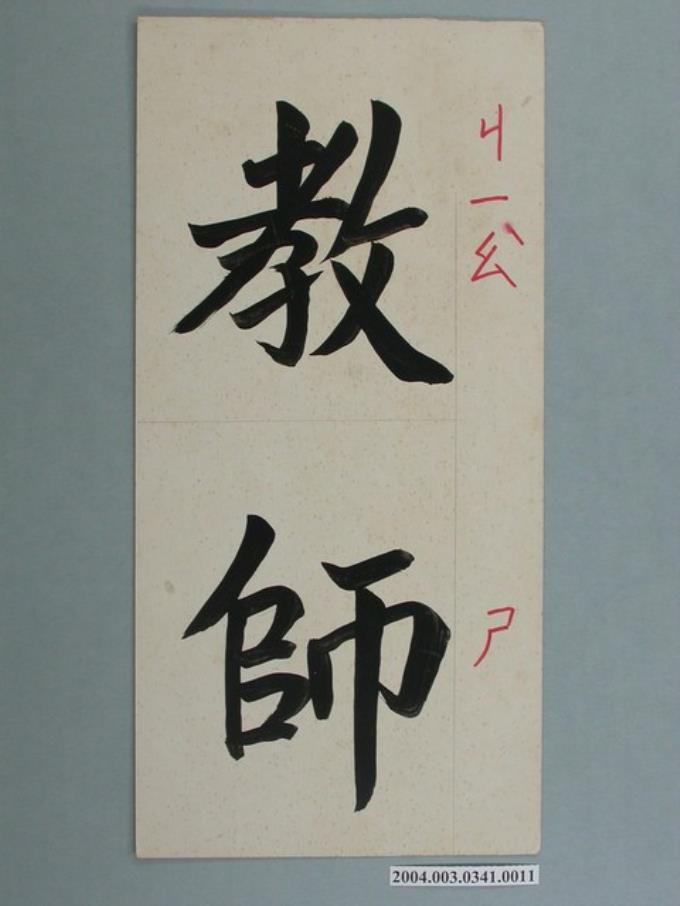 教師
ㄐㄧㄠˋ ㄕ
2004.003.0341.0011